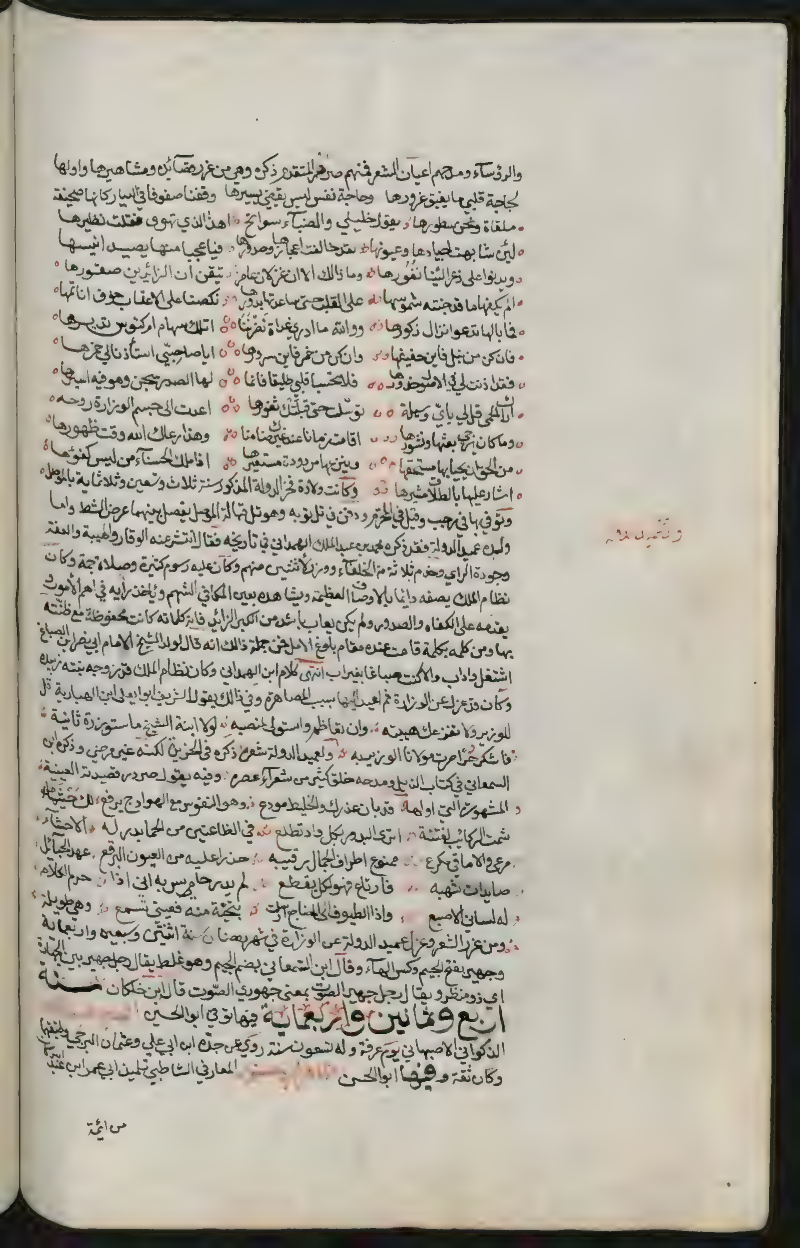 والرؤساء ومدحهم اعيان الشعر فمنهم صردر المتقدم ذكره وهي من غرر قصائده ومشاهيرها واولها
لجاجة قلبي ما يفيق غرورها وحاجة نفس ليس يقضى يسيرها وقفنا صفوفا في الديار كانها صحيفة
ملقاة ونحن سطورها يقول خليلي والظباء سوانح اهذا الذي تهوى فقلت نظيرها
لئن شابهت اجيادها وعيونها لقد خالفت اعجازها وصدورها فيا عجبا منها يصيد انيسها
ويدنو على ذعر الينا نفورها وما ذاك الا ان غزلان عامر تيقن ان الزائرين صقورها
الم يكفها ما قد جنته شموسها على القلب حتى ساعدتها بدورها نكصنا على الاعقاب خوف اناثها
فما بالها تدعو نزال ذكورها ووالله ما ادري غداة نظرننا اتلك سهام ام كؤوس تديرها
فان كن من نبل فاين حفيفها وان كن من خمر فاين سرورها ايا صاحبي استأذنا لي خمرها
فقد اذنت لي في الوصول خدورها فلا تحسبا قلبي طليقا فانما لها الصدر سجن وهو فيه اسيرها
اراك الحمى قل لي باي وسيلة توسلت حتى قبلتك ثغورها اعدت الى جسم الوزارة روحه
وما كان يرجى بعثها ونشورها اقامت زمانا عند غيرك طامثا وهذا زمانك الله وقت ظهورها
من الحق ان يحبا بها مستحقها وينزعها مردودة مستعيرها اذا ملك الحسناء من ليس كفوها
اشار عليها بالطلاق مشيرها وكانت ولادة فخر الدولة المذكور سنة ثلاث وتسعين وثلاثماية بالموصل
وتوفي بها في رجب وقيل في المحرم ودفن في تل توبه وهو تل قبالة الموصل يفصل بينهما عرض الشط واما
ولده عميد الدولة فقد ذكره محمد بن عبد الملك الهمداني في تاريخه فقال انتشر عنه الوقار والهيبة والعفة
وجودة الراي وخدم ثلاثة من الخلفاء ووزر لاثنين منهم وكان عليه رسوم كثيرة وصلات جمة وكان
نظام الملك يصفه دايما بالاوصاف العظيمة ويشاهده بعين الكافي الشهم وياخذ رايه في اهم الامور و
يقدمه على الكفاة والصدور ولم يكن يعاب باشد من الكبر الزايد فان كلماته كانت محفوظة مع ظنته
بها ومن كلمه بكلمة قامت عنده مقام بلوغ الامل فمن جملة ذلك انه قال لولد الشيخ الامام ابي نصر ابن الصباغ
اشتغل واداب والا كنت صباغا بغير اب انتهى كلام ابن الهمداني وكان نظام الملك قد زوجه بنته زبيدة
وكان قد عزل عن الوزارة ثم اعيد اليها بسبب المصاهرة وفي ذلك يقول الشريف ابو يعلى ابن الهبارية قل
للوزير ولا تفزعك هيبته وان تعاظم واستولى لمنصبه لولا ابنة الشيخ ما استوزرت ثانية
فاشكر حرا صرت مولانا الوزير به ولعميد الدولة شعر ذكره في الخريدة لكنه غير مرضي وذكره ابن
السمعاني في كتاب الذيل ومدحه خلق كثير من شعراء عصره وفيه يقول صردر قصيدته العينية
المشهورة التي اولها قد بان عذرك والخليط مودع وهوى النفوس مع الهوادج يرفع لك حيثما
سمت الركايب لفتة اترى البدور بكل واد تطلع في الظاعنين من الحمى بدر له الاحشاء
مرعى والاماقي مكرع ممنوع اطراف الجمال رقيبه حذرا عليه من العيون البرقع عهد الحبائل
صايدات شبهه فارتاع فهو لكل يقطع لم يدر حامي سربه اني اذا حرم الكلام
له لسان الاصبع واذا الطيوف الى المضاجع ارسلت بتحية منه فعيني تسمع وهي طويلة
ومن غرر الشعر وعزل عميد الدولة عن الوزارة في شهر رمضان سنة اثنتين وسبعين واربعماية
وجهير بفتح الجيم وكسر الهاء وقال ابن السمعاني بضم الجيم وهو غلط يقال رجل جهير بين الجهارة
اي ذو منظر ويقال رجل جهير الصوت بمعنى جهوري الصوت قال ابن خلكان سنة
اربع وثمانين واربعماية فيها توفي ابو الحسين
الذكواني الاصبهاني يوم عرفة وله تسعون سنة روى عن جده ابي علي وعثمان البرجي وطبقتهما
وكان ثقة وفيها ابو الحسن المعافري الشاطبي تلميذ ابي عمر ابن عبد البر
من ائمة